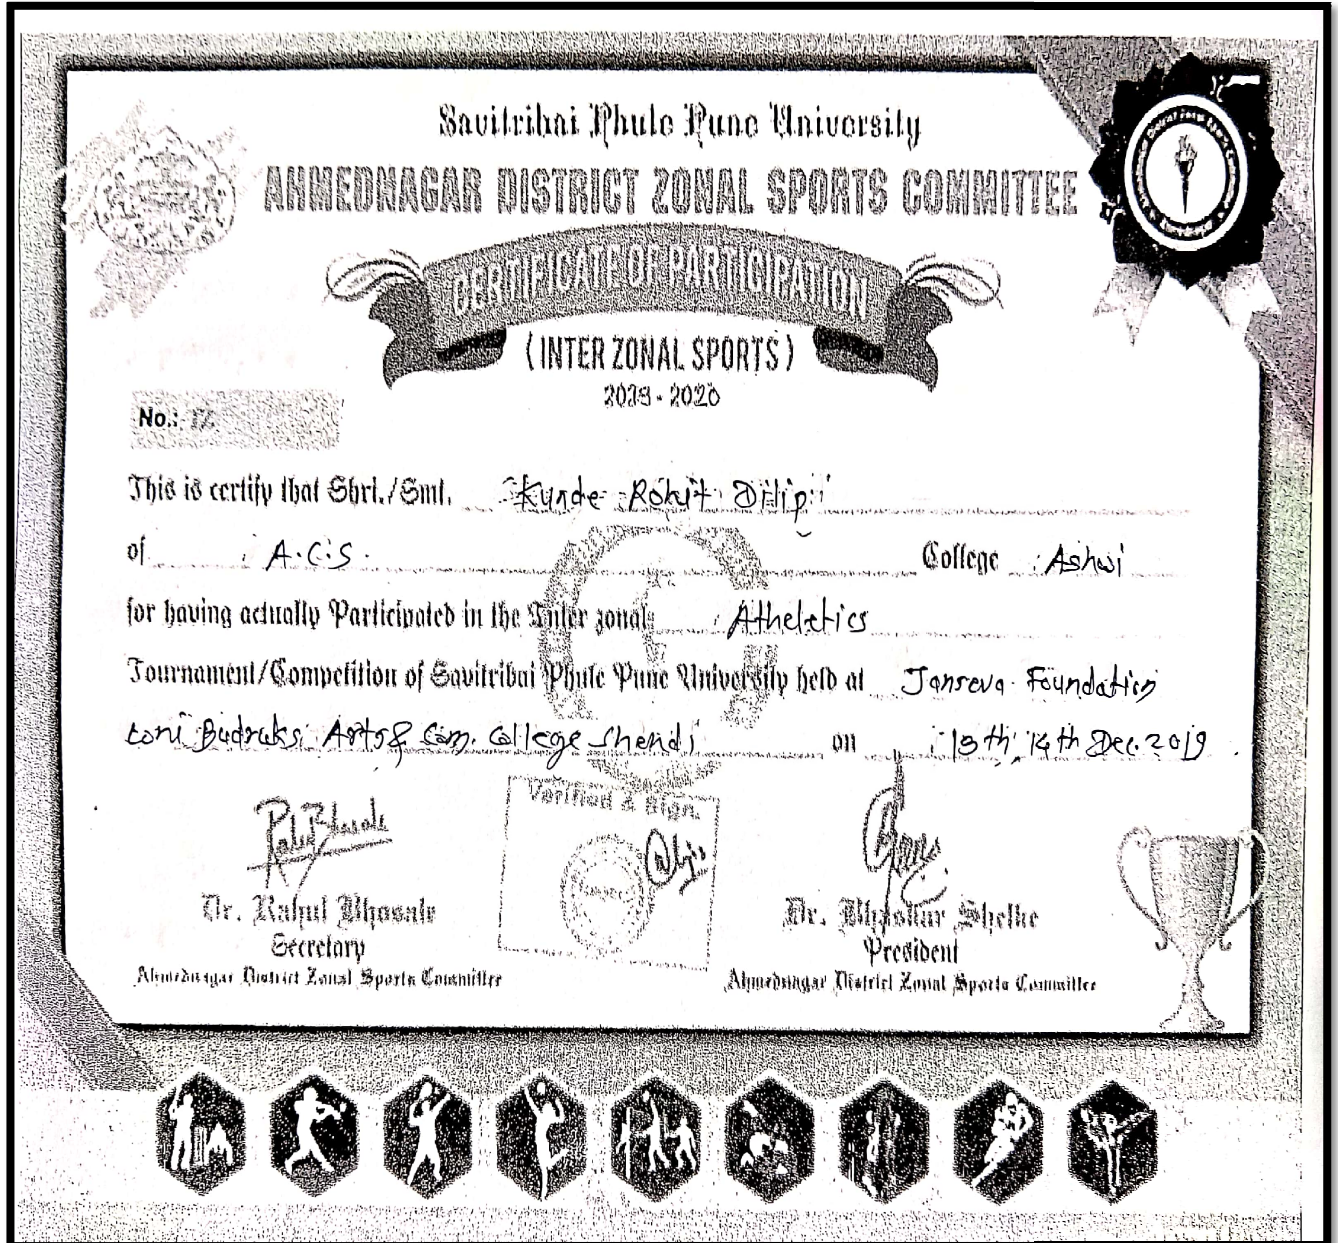 Savitribai Phule Pune University
AHMEDNAGAR DISTRICT ZONAL SPORTS COMMITTEE
CERTIFICATE OF PARTICIPATION
(INTER ZONAL SPORTS)
2019 - 2020
No.:
This is certify that Shri./Smt. Kunde Rohit Dilip
of A.C.S. College Ashwi
for having actually Participated in the Inter zonal Atheletics
Tournament/Competition of Savitribai Phule Pune University held at Janseva Foundation
Loni Budruks Arts & Com. College Shendi on 13th, 14th Dec. 2019.
Verified & Sign.
Dr. Rahul Bhosale
Secretary
Ahmednagar District Zonal Sports Committee
Dr. Bhaskar Shelke
President
Ahmednagar District Zonal Sports Committee